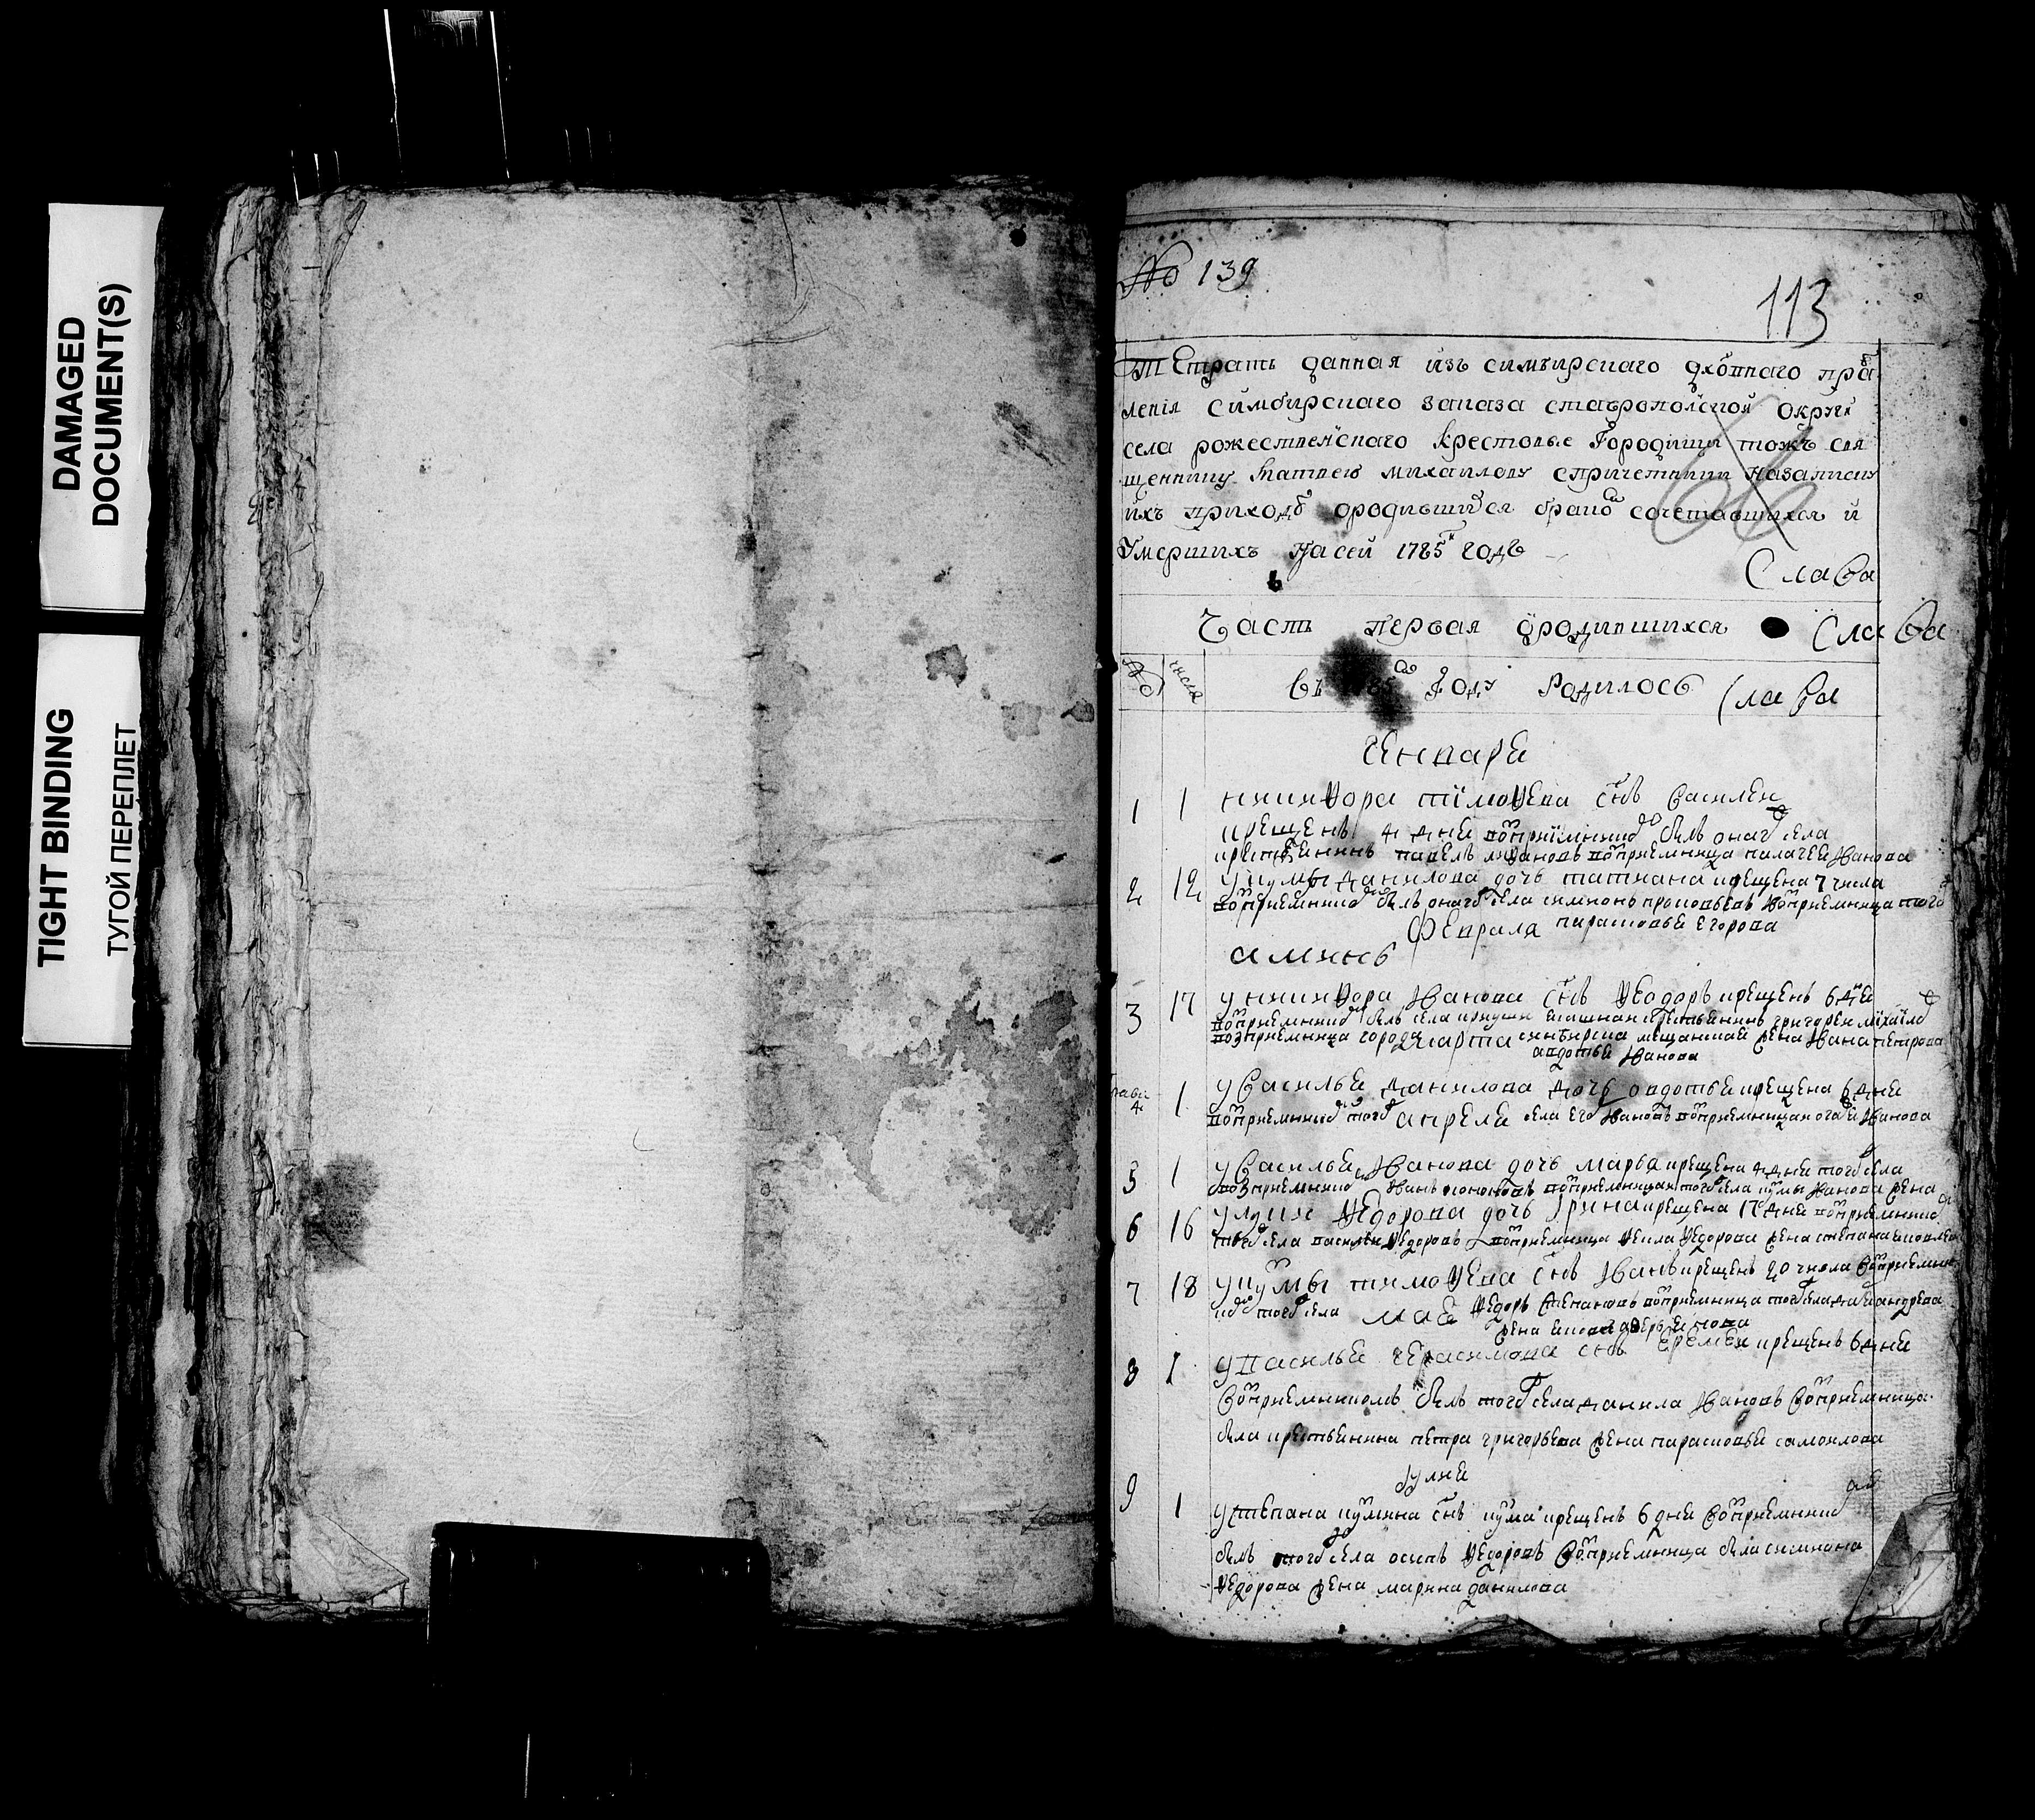 DAMAGED
DOCUMENT(S)
TIGHT BINDING
ТУГОЙ ПЕРЕПЛЕТ
№ 139
113
Тетрать данная изъ симбирскаго дховнаго прав
ления Симбирскаго заказа ставропольской округи
села рожественскаго крестовые Городищи тожъ свя
щеннику матвею михаилову спричетники назаписку
ихъ приходѣ ородившихся браком сочетавшихся и
Умершихъ на сей 1785й годъ
Слава
Часть первая ѡродившихся Слава
№ числа
въ году Родилось Слава
Генваря
1 1 никиѳора тимоѳеева снъ Василеи
крещенъ 4 дня восприемникъ былъ онаго села
крестьенинъ павелъ ивановъ восприемница палагея Иванова
2 12 у кузмы данилова дочь татиана крещена 7 числа
восприемникъ былъ онаго села симионъ прокопьевъ восприемница того
парасковья егорова
Февраля
аминь
3 17 у никиѳора Иванова снъ ѳеодоръ крещенъ 6 дня
восприемникъ былъ села крестьенинъ григореи михаило
возприемница города симбирска мещанскай жена Ивана петрова
авдотья Иванова
марта
4 1 у Василья данилова дочь овдотья крещена 6 дня
восприемникъ того села Ивановъ восприемница Иванова
апреля
5 1 у Василья Иванова дочь марѳа крещена 4 дня того села
возприемникъ Иванъ восприемница того села кузмы Иванова жена
6 16 ѳедорова дочь Ирина крещена 17 дня восприемникъ
того села василеи ѳедоровъ восприемница ѳекла ѳедорова жена степана
7 18 у кузмы тимоѳеева снъ Иванъ крещенъ 20 числа восприемни
къ того села ѳедоръ Степановъ восприемница того села андреева
жена
мая
8 1 у василья герасимова снъ еремеи крещенъ 6 дня
Восприемникомъ былъ того села данила Ивановъ Восприемница
была крестьенина петра григорьева жена парасковья самоилова
Iулия
9 1 у степана кузмина снъ кузма крещенъ 6 дня Восприемник
былъ того села осипъ ѳедоровъ Восприемница была симиона
ѳедорова жена марина данилова